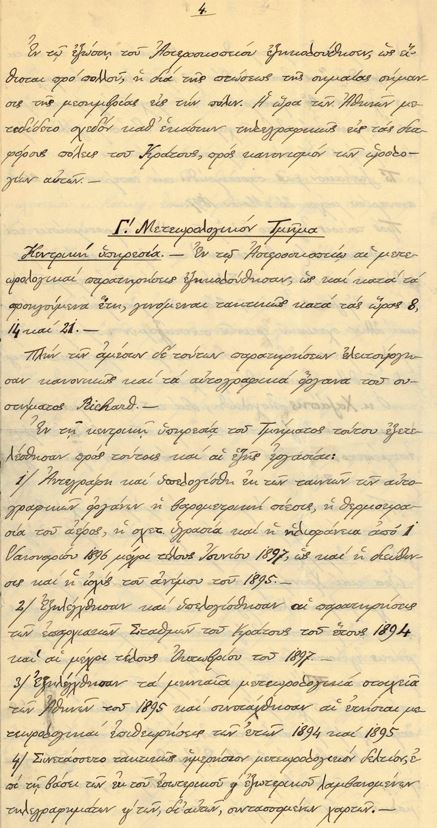 4.
Ἐν τῷ ἐξώστῃ τοῦ Ἀστεροσκοπείου ἐξηκολούθησεν, ὡς εἴ-
θισται πρὸ πολλοῦ, ἡ διὰ τῆς πτώσεως τῆς σημαίας σήμαν-
σις τῆς μεσημβρίας εἰς τὴν πόλιν. Ἡ ὥρα τῶν Ἀθηνῶν με-
τεδίδετο σχεδὸν καθ' ἑκάστην τηλεγραφικῶς εἰς τὰς δια-
φόρους πόλεις τοῦ Κράτους, πρὸς κανονισμὸν τῶν ὡρολο-
γίων αὐτῶν. —
Γ'. Μετεωρολογικὸν Τμῆμα
Κεντρικὴ ὑπηρεσία. — Ἐν τῷ Ἀστεροσκοπείῳ αἱ μετε-
ωρολογικαὶ παρατηρήσεις ἐξηκολούθησαν, ὡς καὶ κατὰ τὰ
προηγούμενα ἔτη, γινόμεναι τακτικῶς κατὰ τὰς ὥρας 8,
14 καὶ 21. —
Πλὴν τῶν ἀμέσων δὲ τούτων παρατηρήσεων ἐλειτούργη-
σαν κανονικῶς καὶ τὰ αὐτογραφικὰ ὄργανα τοῦ συ-
στήματος Richard. —
Ἐν τῇ κεντρικῇ ὑπηρεσίᾳ τοῦ Τμήματος τούτου ἐξετε-
λέσθησαν πρὸς τούτοις καὶ αἱ ἑξῆς ἐργασίαι:
1/ Ἀντεγράφη καὶ ὑπελογίσθη ἐκ τῶν ταινιῶν τῶν αὐτο-
γραφικῶν ὀργάνων ἡ βαρομετρικὴ πίεσις, ἡ θερμοκρα-
σία τοῦ ἀέρος, ἡ σχετ. ὑγρασία καὶ ἡ ἡλιοφάνεια ἀπὸ 1
Ἰανουαρίου 1896 μέχρι τέλους Ἰουνίου 1897, ὡς καὶ ἡ διεύθυν-
σις καὶ ἡ ἰσχὺς τοῦ ἀνέμου τοῦ 1895. —
2/ Ἐξηλέγχθησαν καὶ ὑπελογίσθησαν αἱ παρατηρήσεις
τῶν ἐπαρχιακῶν Σταθμῶν τοῦ Κράτους τοῦ ἔτους 1894
καὶ αἱ μέχρι τέλους Ὀκτωβρίου τοῦ 1897. —
3/ Ἐξηλέγχθησαν τὰ μηνιαῖα μετεωρολογικὰ στοιχεῖα
τῶν Ἀθηνῶν τοῦ 1895 καὶ συνετάχθησαν αἱ ἐτήσιαι με-
τεωρολογικαὶ ἐπιθεωρήσεις τῶν ἐτῶν 1894 καὶ 1895
4/ Συνετάσσετο τακτικῶς ἡμερήσιον μετεωρολογικὸν δελτίον, ἐ-
πὶ τῇ βάσει τῶν ἐκ τοῦ ἐσωτερικοῦ & ἐξωτερικοῦ λαμβανομένων
τηλεγραφημάτων & τῶν, δι' αὐτῶν, συντασσομένων χαρτῶν. —